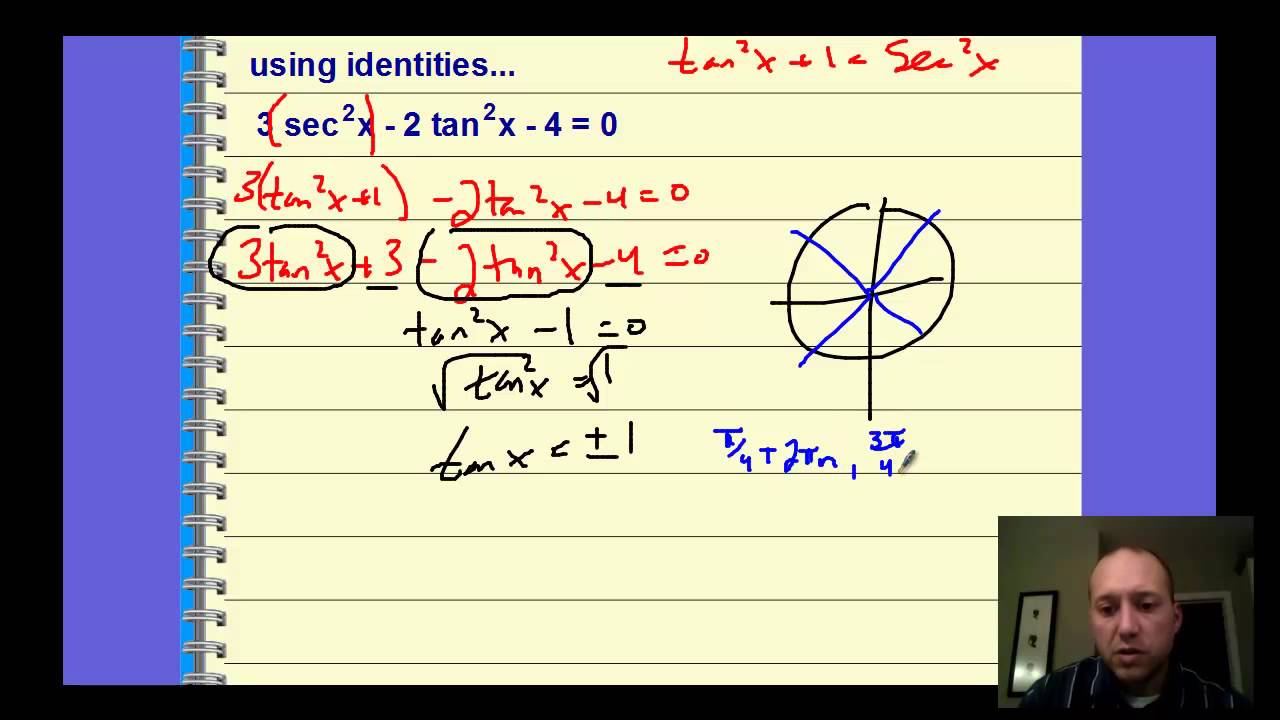 using identities...
tan²x + 1 = sec²x
3(sec²x) - 2 tan²x - 4 = 0
3(tan²x+1) - 2tan²x - 4 = 0
3tan²x + 3 - 2tan²x - 4 = 0
tan²x - 1 = 0
√tan²x = √1
tan x = ± 1
π/4 + 2πn, 3π/4